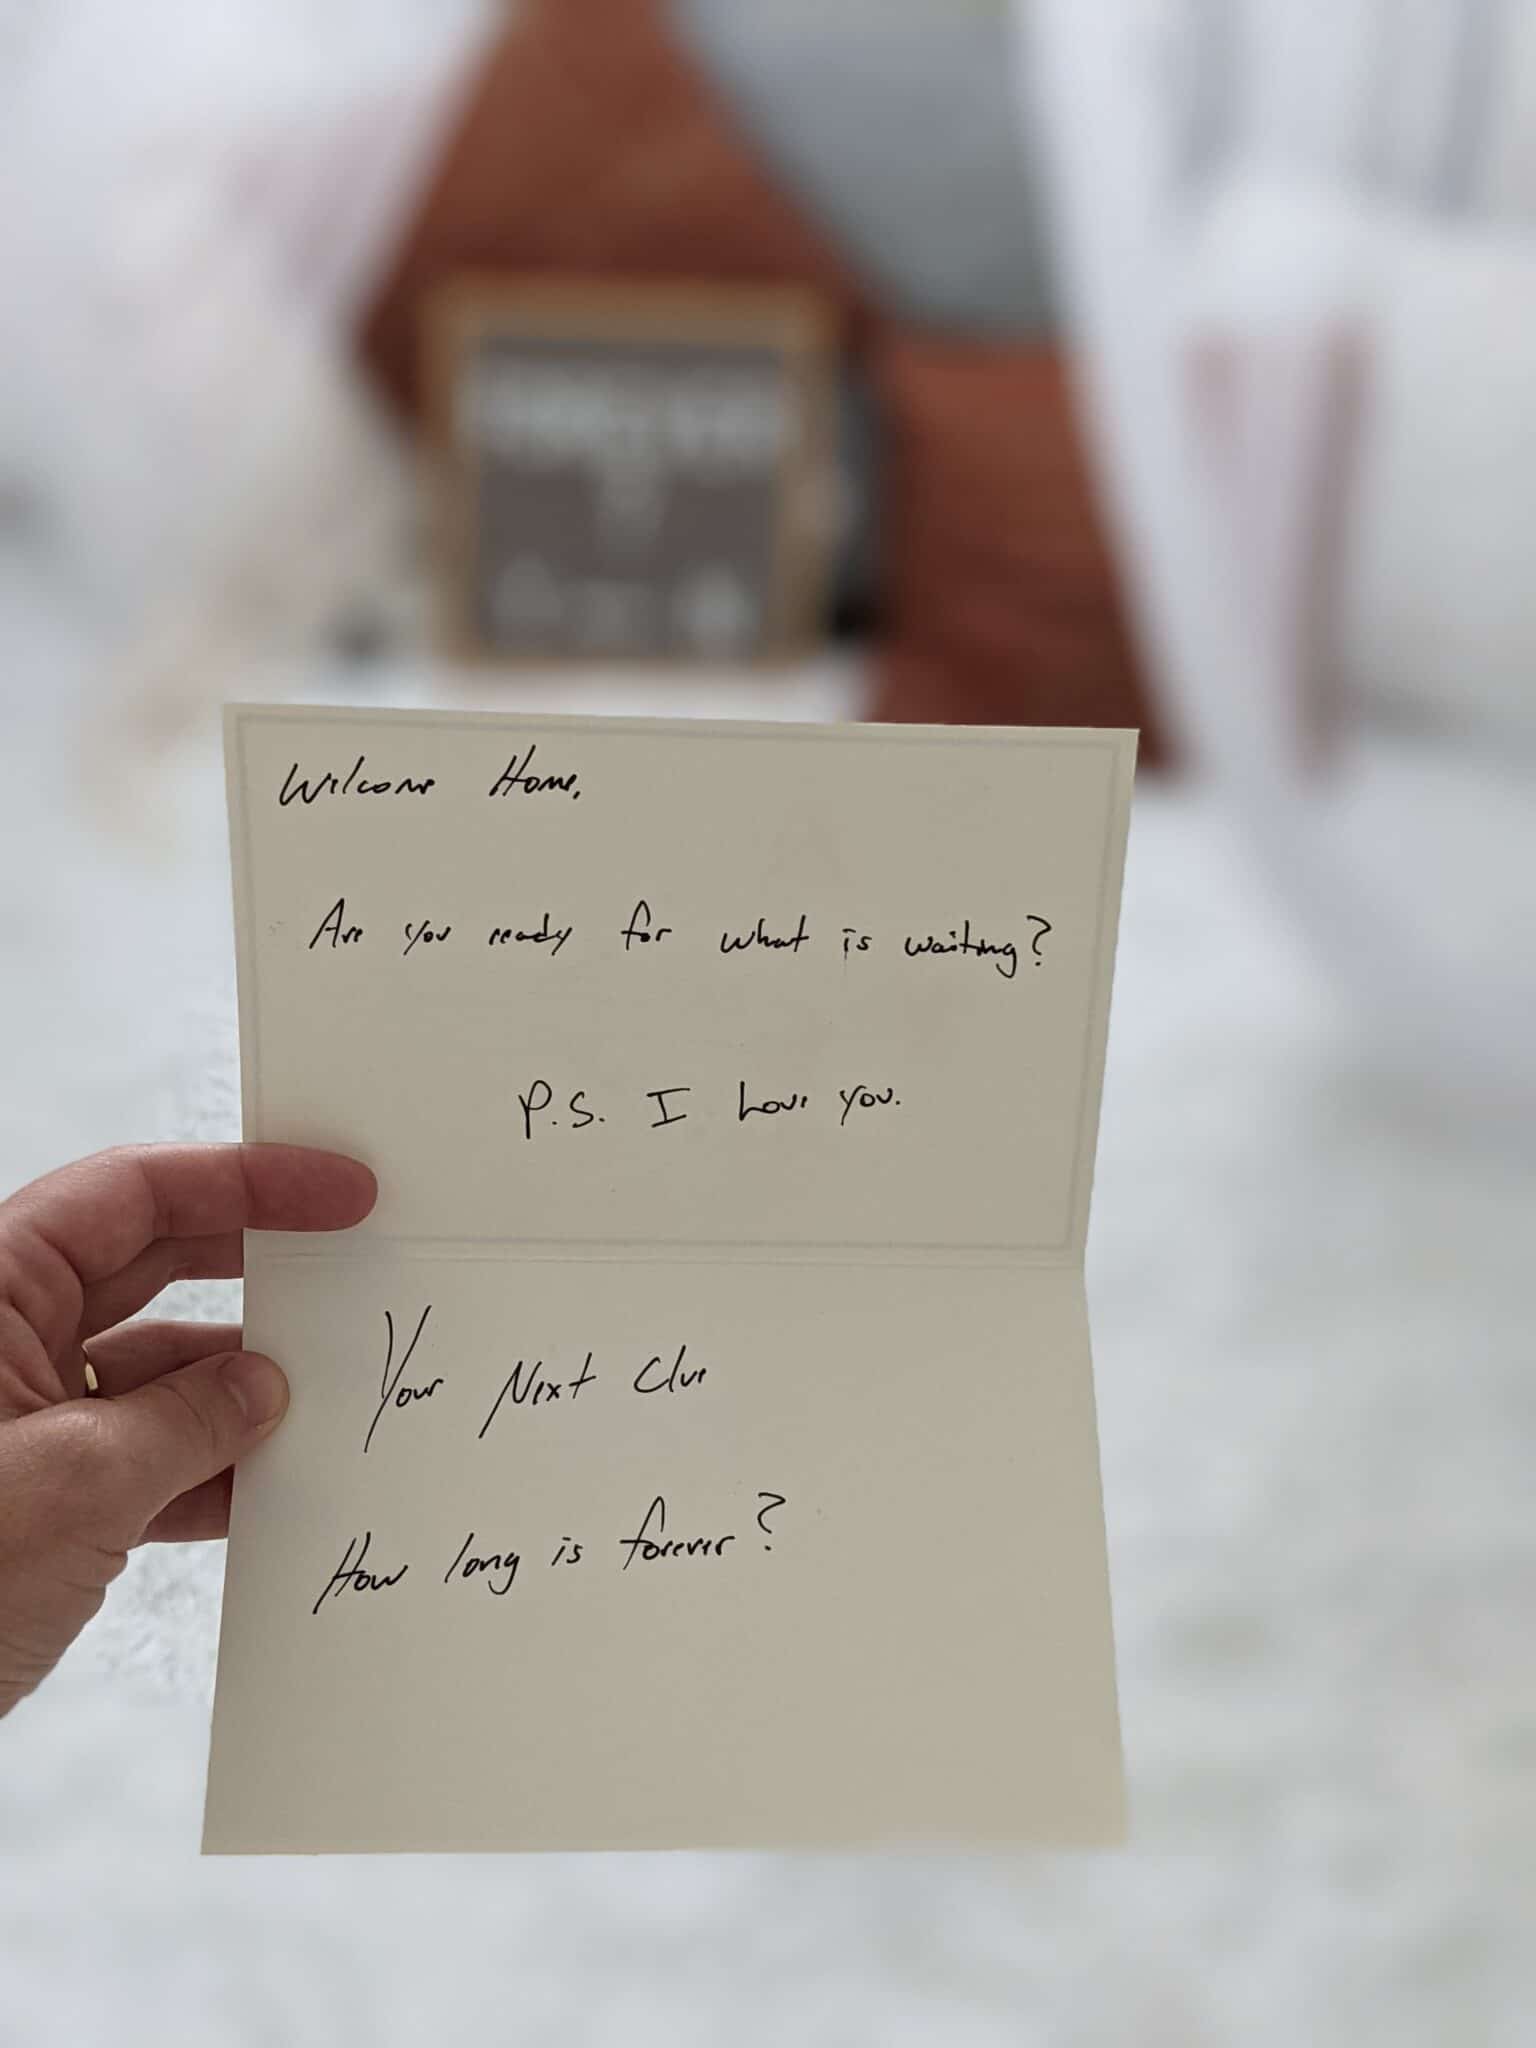 Welcome Home,
Are you ready for what is waiting?
P.S. I Love you.
Your Next Clue
How long is forever?